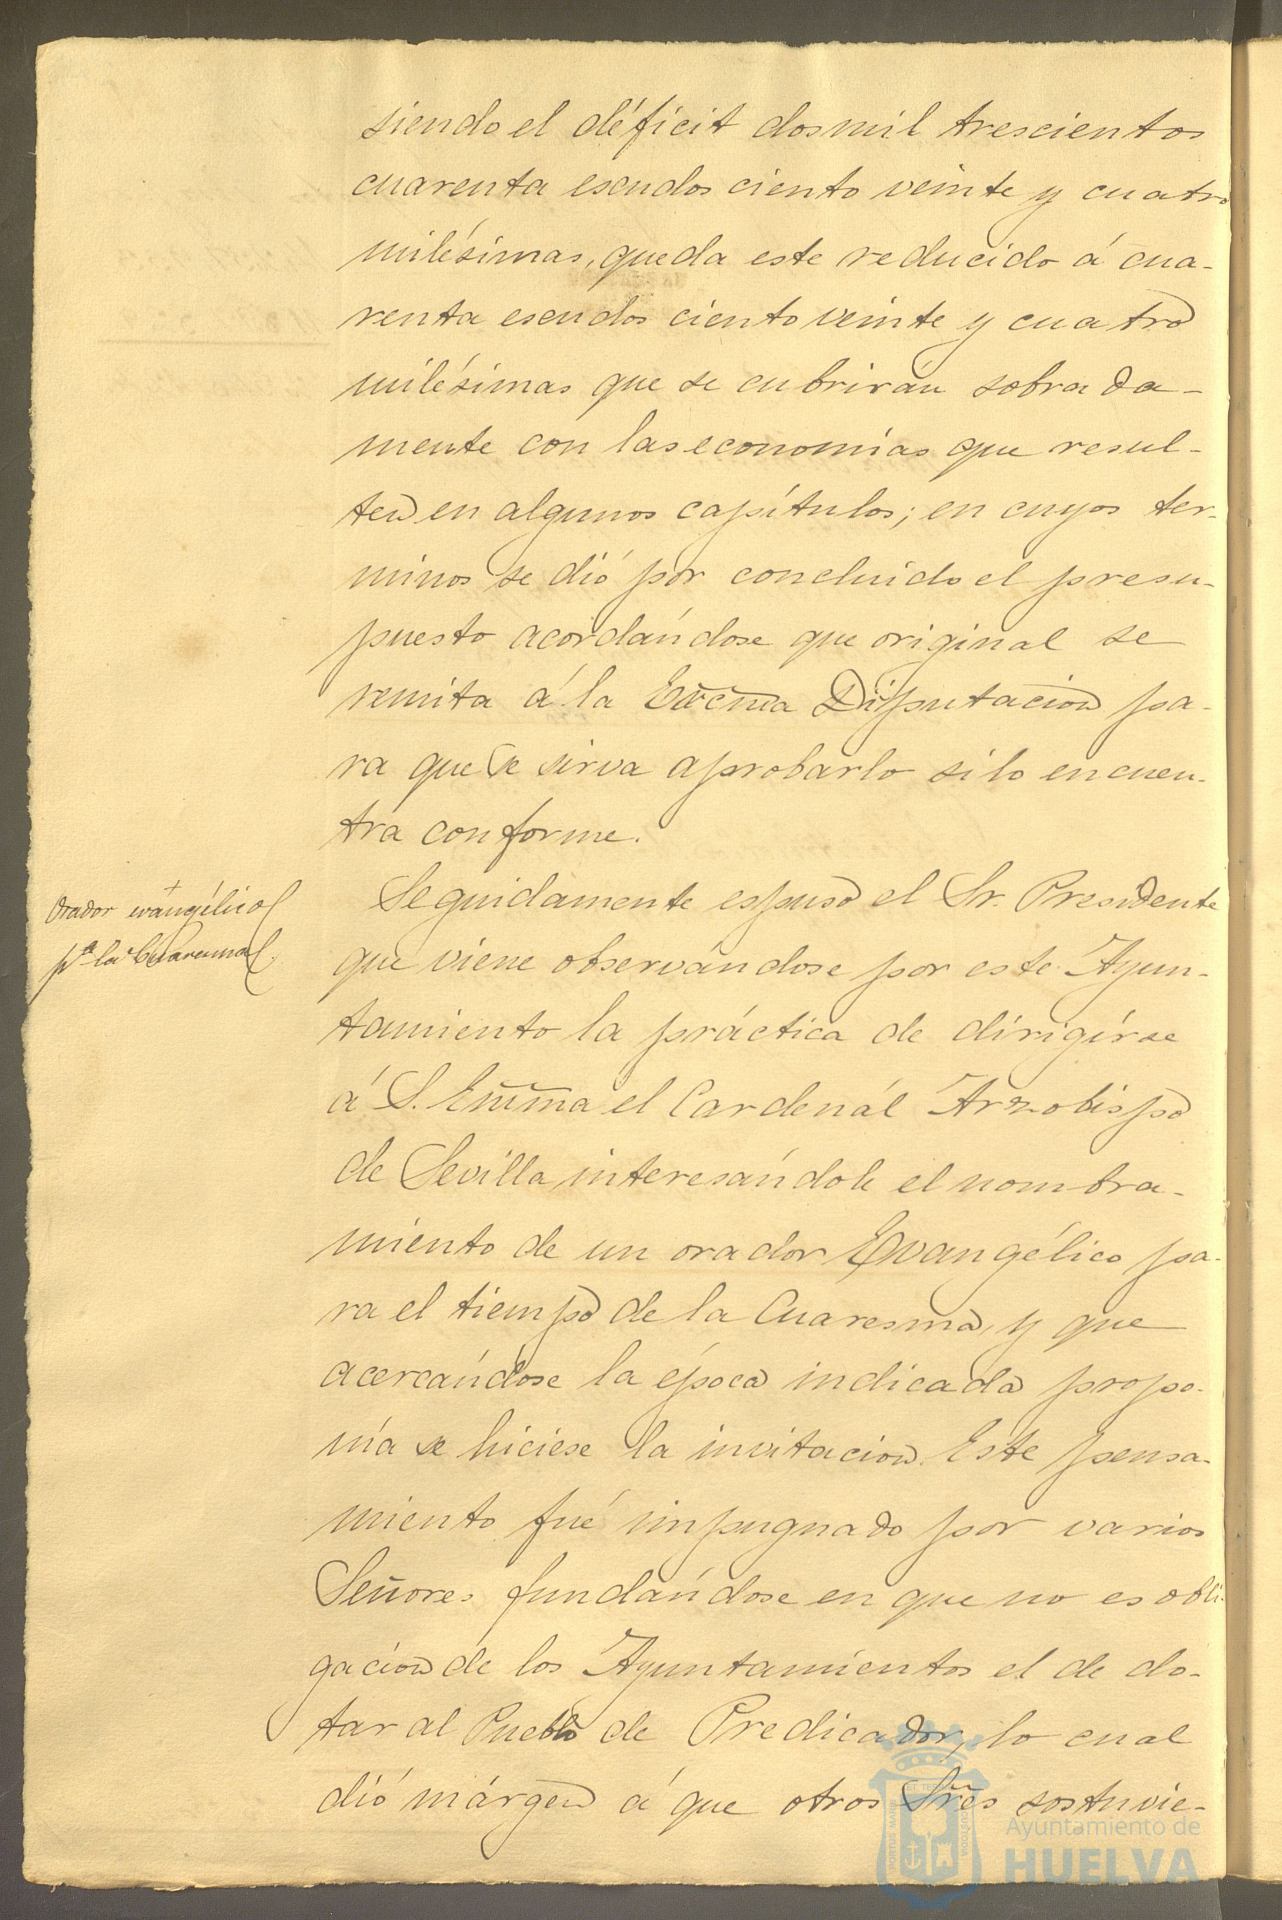 siendo el déficit dos mil trescientos
cuarenta escudos ciento veinte y cuatro
milésimas, queda este reducido á cua-
renta escudos ciento veinte y cuatro
milésimas que se cubrirán sobrada-
mente con las economías que resul-
ten en algunos capítulos; en cuyos ter-
minos se dió por concluido el presu-
puesto acordándose que original se
remita á la Excma Diputacion pa-
ra que se sirva aprobarlo si lo encuen-
tra conforme.
Orador evangélico
pª la Cuaresma.
Seguidamente espuso el Sr. Presidente
que viene observándose por este Ayun-
tamiento la práctica de dirigirse
á S. Emma el Cardenál Arzobispo
de Sevilla interesándole el nombra-
miento de un orador Evangélico pa-
ra el tiempo de la Cuaresma, y que
acercándose la época indicada propo-
nía se hiciese la invitacion. Este pensa-
miento fué impugnado por varios
Señores fundándose en que no es obli-
gacion de los Ayuntamientos el de do-
tar al Pueblo de Predicador, lo cual
dió márgen á que otros Sres sostuvie-
Ayuntamiento de
HUELVA